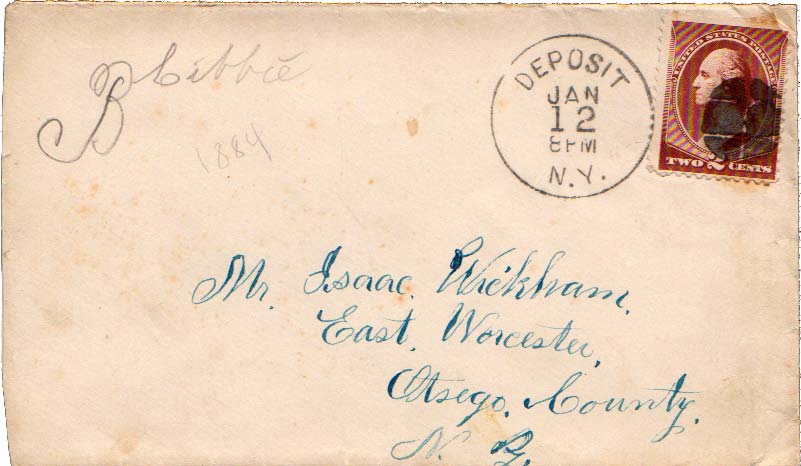 B Libbie
1884
DEPOSIT
JAN
12
8PM
N.Y.
UNITED STATES POSTAGE
TWO 2 CENTS
Mr. Isaac. Wickham.
East. Worcester,
Otsego. County.
N. Y.